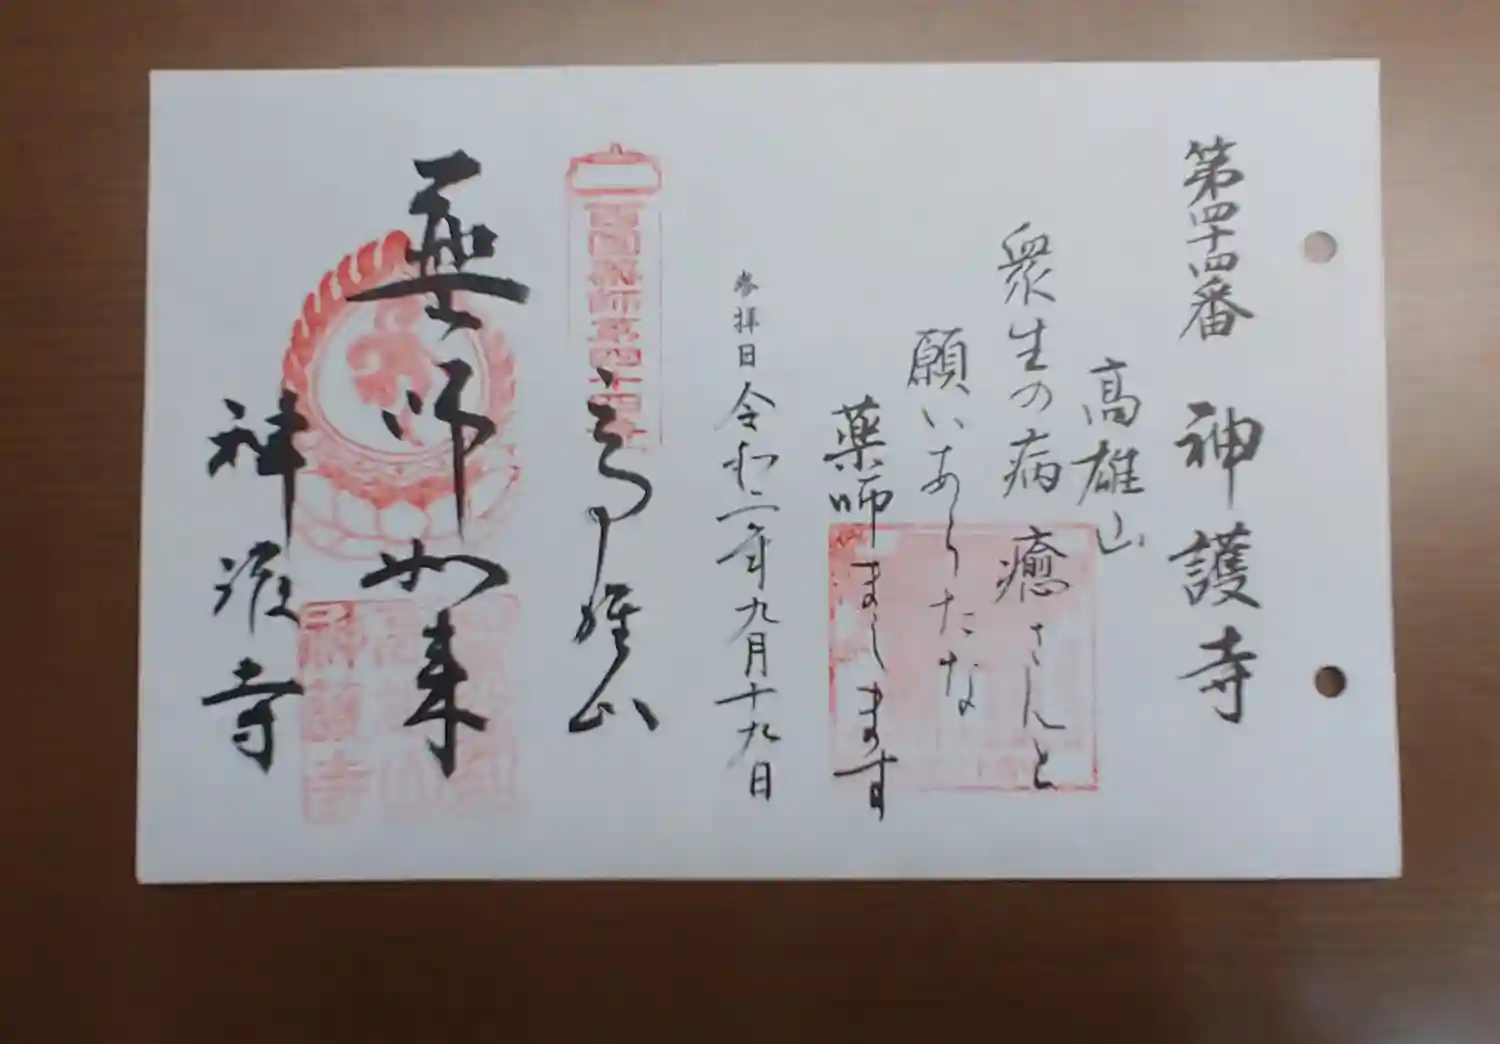 第四十四番 神護寺
高雄山
衆生の病 癒さんと
願いあらたな
薬師まします
参拝日 令和二年九月十九日
西国薬師第四十四番
高雄山
薬師如来
神護寺